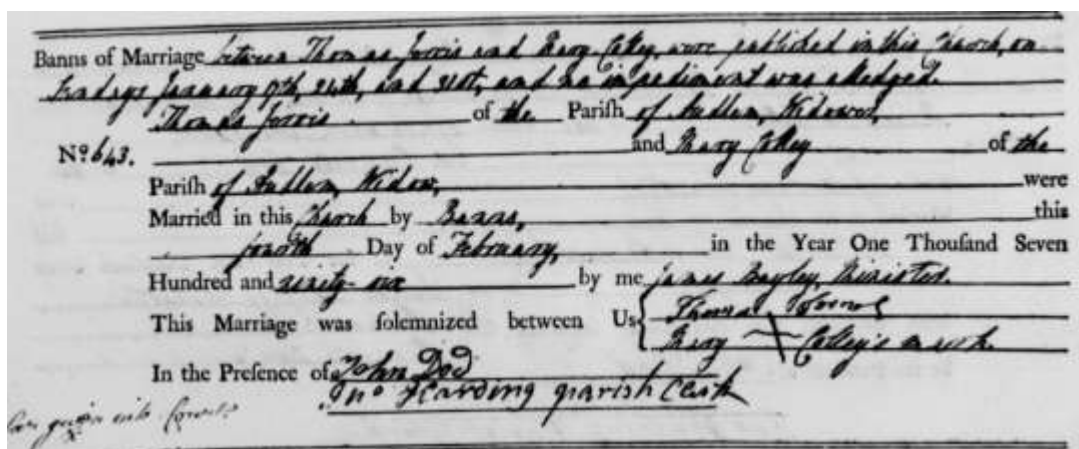 Banns of Marriage between Thomas Jorvis and Mary Colley, were published in this Church, on
Sundays January 17th, 24th, and 31st, and no impediment was alledged.
Thomas Jorvis of the Parish of Audlem, Widower,
No. 643. and Mary Colley of the
Parish of Audlem, Widow, were
Married in this Church by Banns, this
fourth Day of February, in the Year One Thousand Seven
Hundred and ninety-six by me James Bayley, Minister.
This Marriage was solemnized between Us Thomas
Mary Colley's mark.
In the Presence of John Dod
Jno Harding parish Clerk